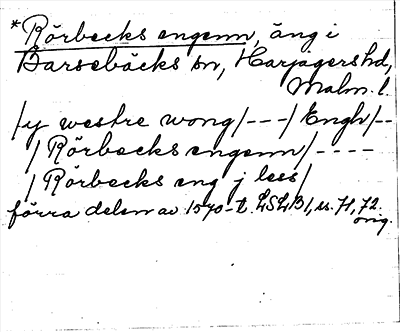 *Rörbecks engenn, äng i
Barsebäcks sn, Harjagers hd,
Malm. l.
/y westre wong/---/Engh/--
/Rörbecks engenn/----
/Rörbecks eng j lees/
förra delen av 1570-t. LSLB1, s. 71, 72.
orig.